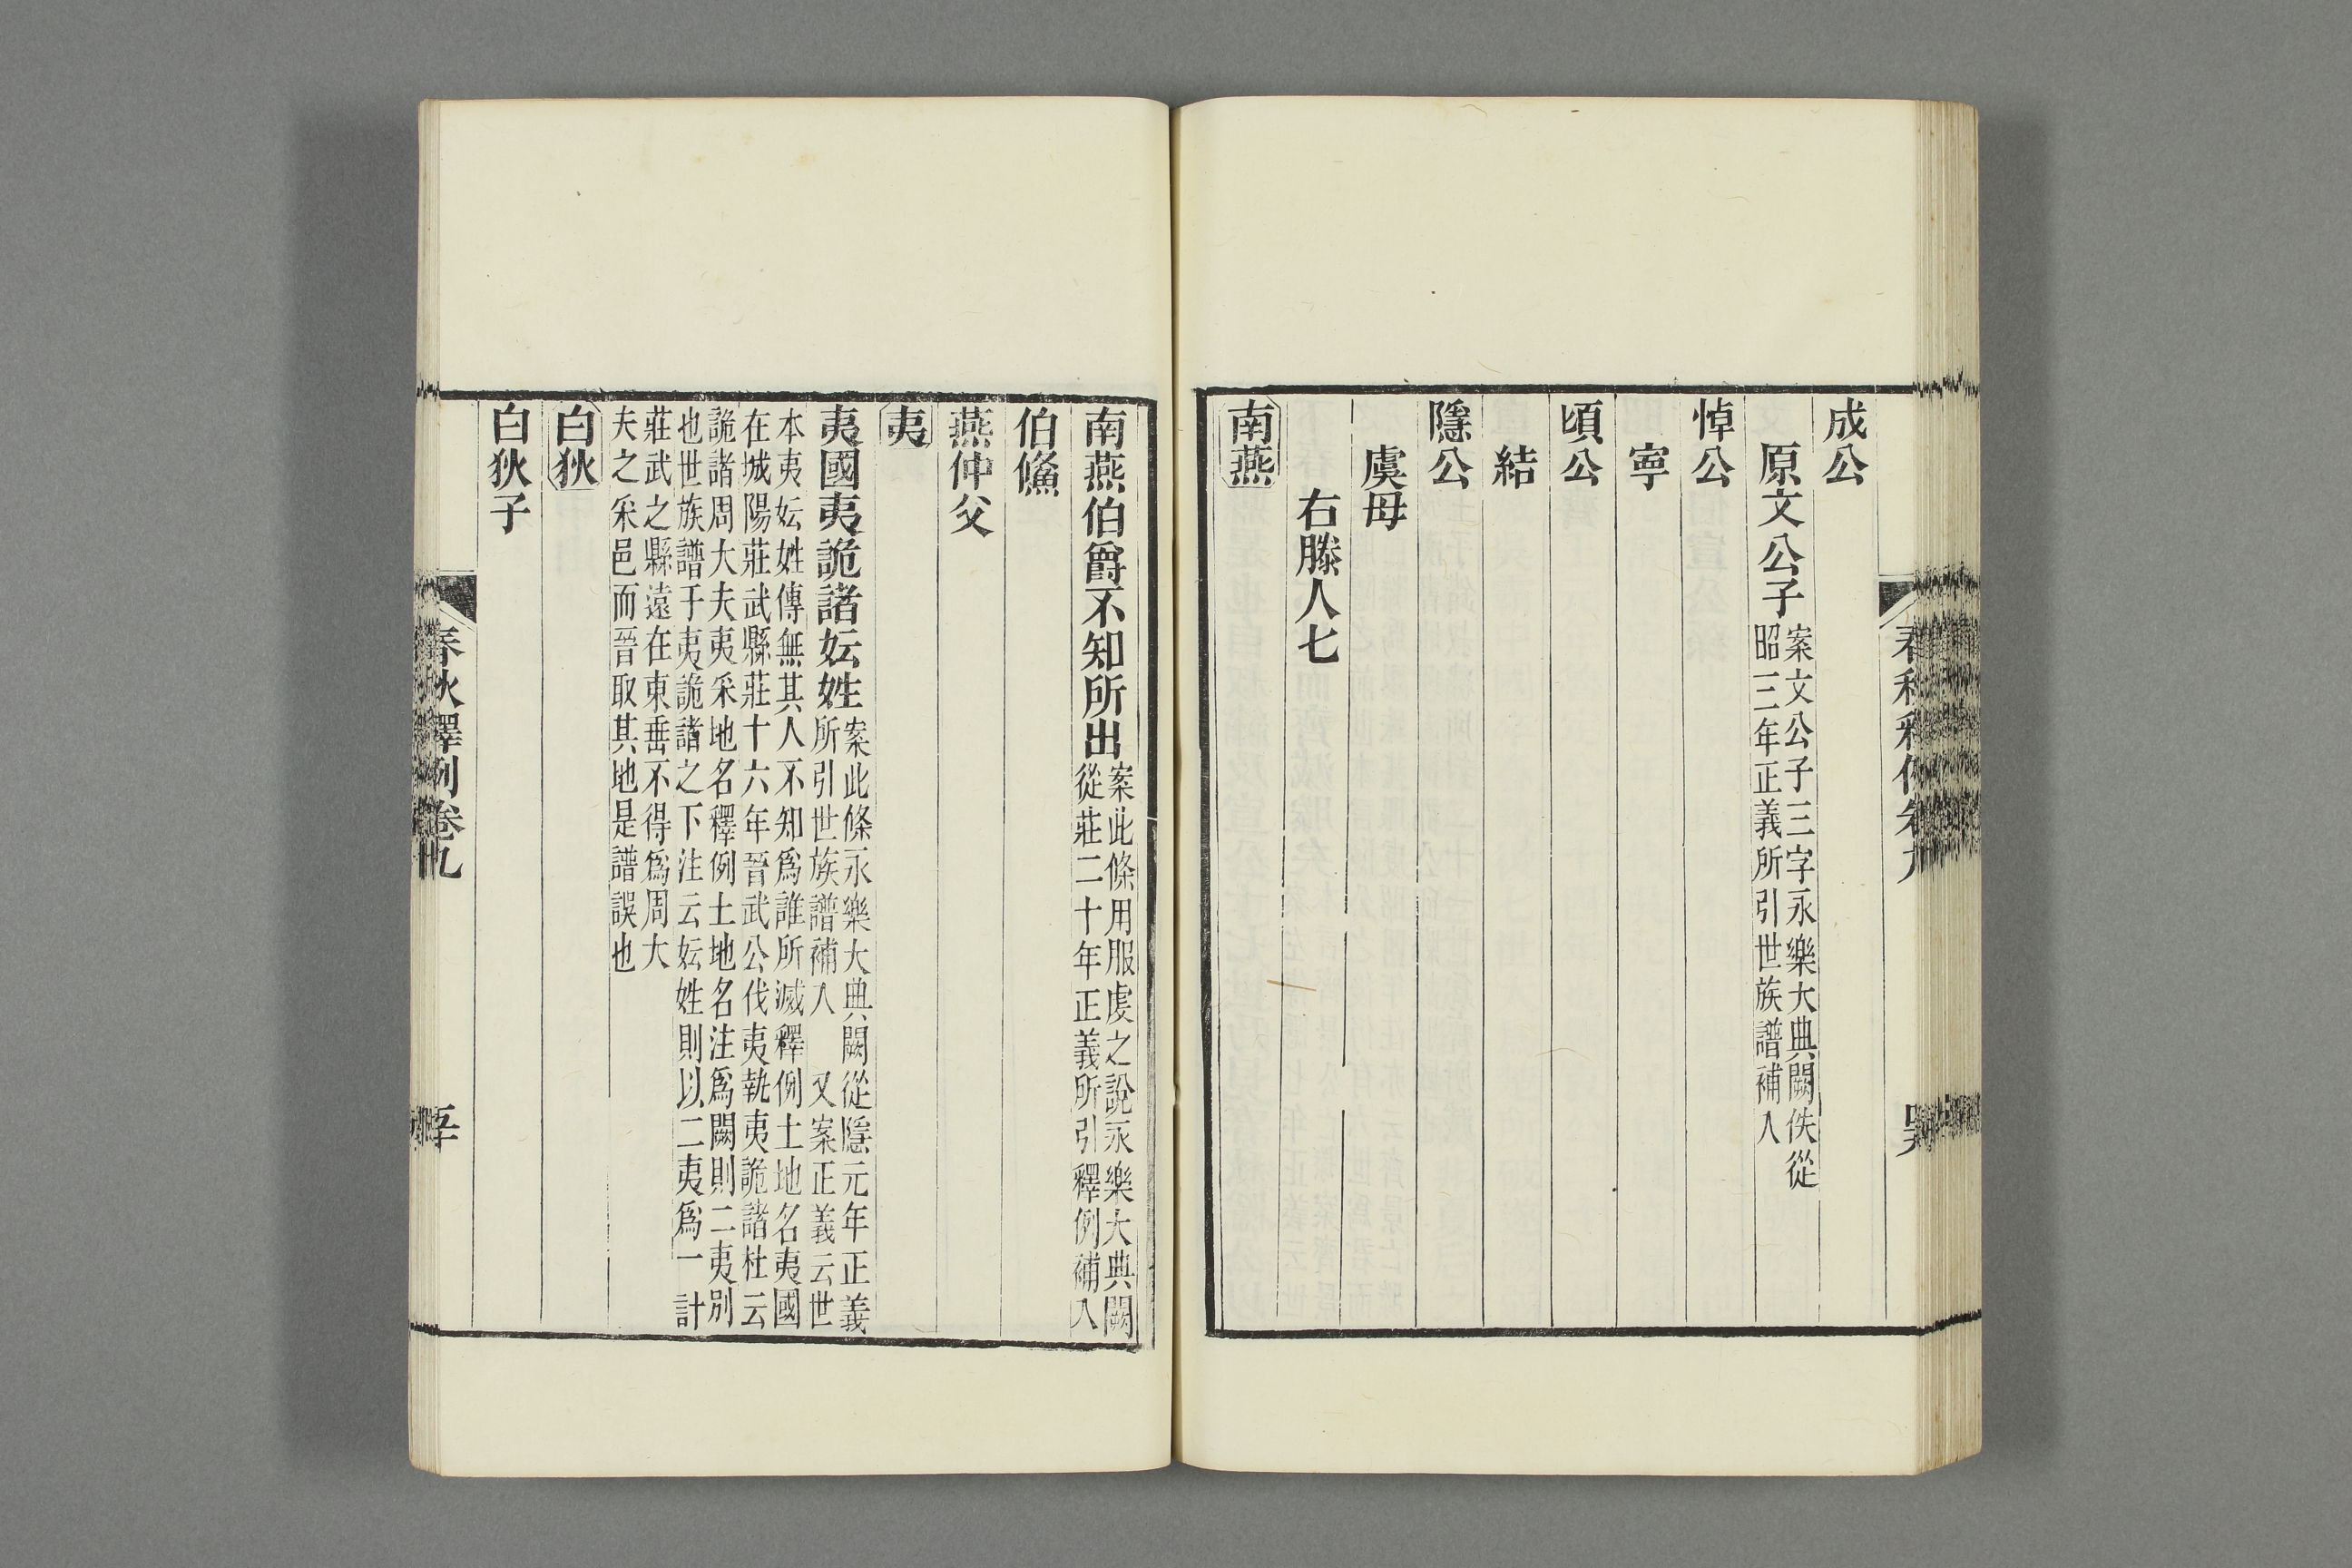 成公
原文公子案文公子三字永樂大典闕佚從
昭三年正義所引世族譜補入
悼公
寧
頃公
結
隱公
虞母
右滕人七
南燕
南燕伯爵不知所出案此條用服虔之說永樂大典闕
從莊二十年正義所引釋例補入
伯鯈
燕仲父
夷
夷國夷詭諸妘姓案此條永樂大典闕從隱元年正義
所引世族譜補入 又案正義云世
本夷妘姓傳無其人不知爲誰所滅釋例土地名夷國
在城陽莊武縣莊十六年晉武公伐夷執夷詭諸杜云
詭諸周大夫夷采地名釋例土地名注爲闕則二夷別
也世族譜于夷詭諸之下注云妘姓則以二夷爲一計
莊武之縣遠在東垂不得爲周大
夫之采邑而晉取其地是譜誤也
白狄
白狄子
春秋釋例卷九